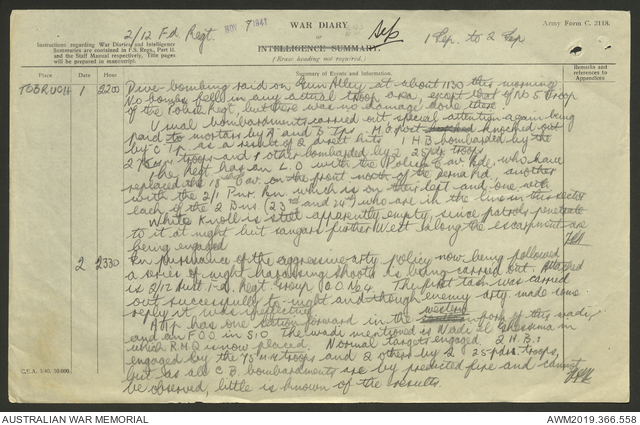 2/12 Fd. Regt.
NOV 7 1941
WAR DIARY
or
INTELLIGENCE SUMMARY.
(Erase heading not required.)
Sep
1 Sep. to 2 Sep
Army Form C. 2118.
Instructions regarding War Diaries and Intelligence
Summaries are contained in F.S. Regs., Part II.
and the Staff Manual respectively. Title pages
will be prepared in manuscript.
Place Date Hour Summary of Events and Information. Remarks and
references to
Appendices
TOBRUCH 1 2200 Dive-bombing raid on Gun Alley at about 1130 this morning
No bombs fell in any actual troop area, except that of No 5 Troop
of the Polish Regt, but there was no damage done there.
Usual bombardments carried out special attention again being
paid to mortars by A and B Tps. M.G. post knocked out
by C Tp. as a result of 2 direct hits. 1 H.B. bombarded by the
2 75mm troops and 1 other bombarded by 2 25 pdr troops.
The Regt has an L.O with the Polish Cav Bde, who have
replaced the 18th on the front north of the Derna Rd, another
with the 2/1 Pnr Bn which is on their left and one with
each of the 2 Bns (23rd and 24th) who are in the line in this sector
White Knoll is still apparently empty, since patrols penetrate
to it at night but sangars further West along the escarpment are
being engaged
2 2330 In pursuance of the aggressive arty policy now being followed
a series of night harassing shoots is being carried out. Attached
is 2/12 Aust Fd. Regt. Group O.O. No 4. The first task was carried
out successfully to-night and though enemy arty. made some
reply it was ineffective
A Tp has one section forward in the western part of this wadi
and an F.O.O in S.10. The wadi mentioned is Wadi el Ghessima in
which R.H.Q is now placed. Normal targets engaged. 2 H.B.s
engaged by the 75mm troops and 2 others by 2 25 pdr. troops,
but as all C.B. bombardments are by predicted fire and cannot
be observed, little is known of the results.
G.E.A. 5/40. 10,000.
AUSTRALIAN WAR MEMORIAL
AWM2019.366.558